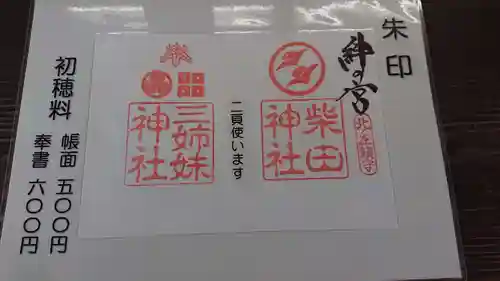 朱印
絆の宮
柴田神社
二頁使います
三姉妹神社
初穂料
帳面 五〇〇円
奉書 六〇〇円